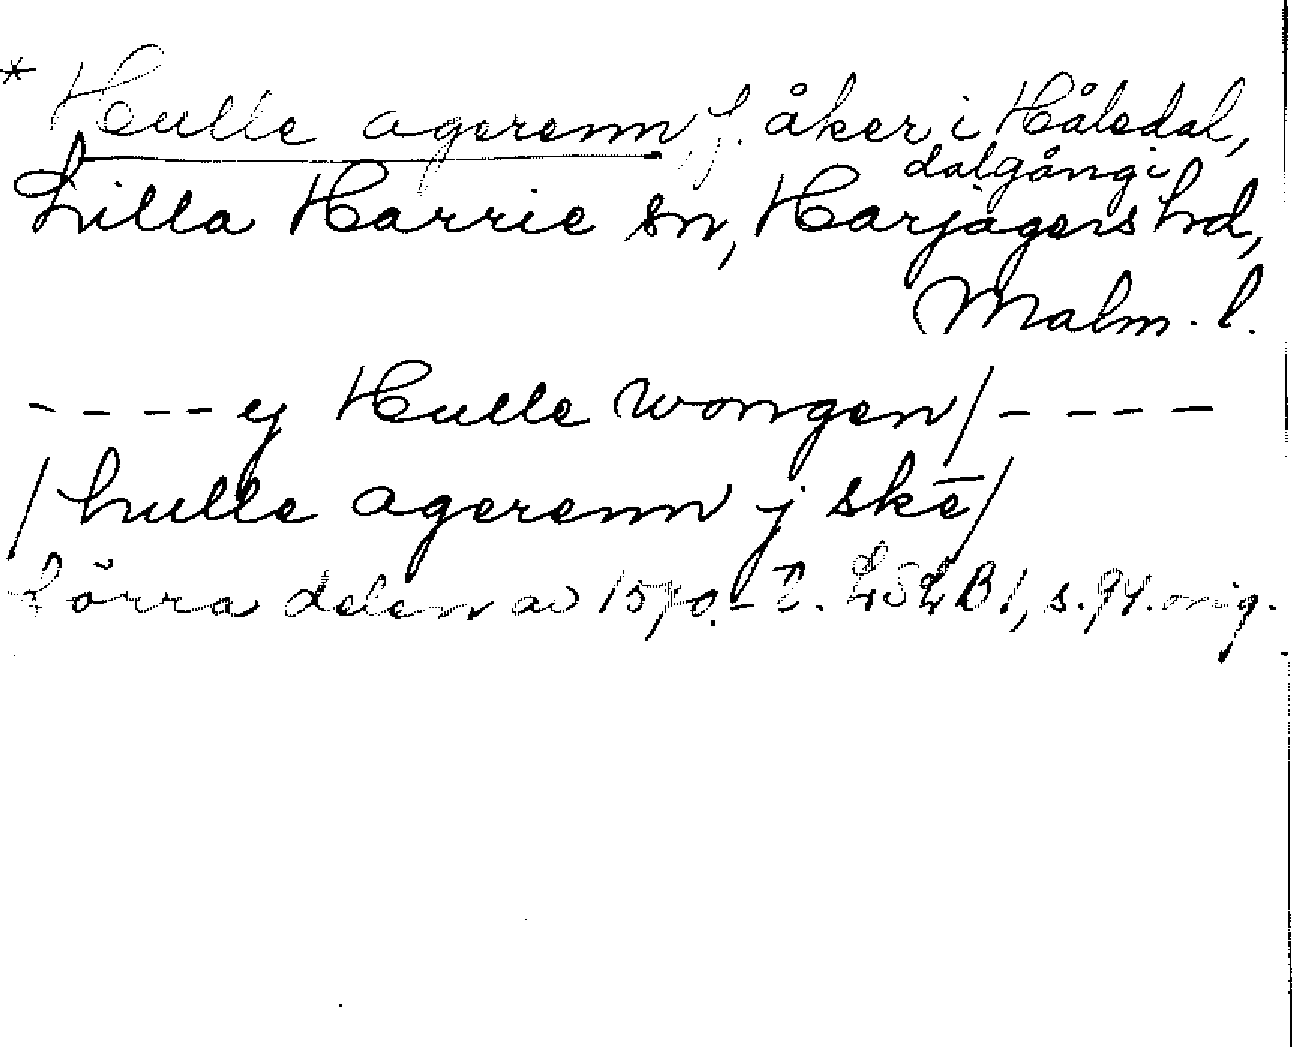 * Hulle agerenn, f. åker i Håledal,
dalgång i
Lilla Harrie sn, Harjagers hd,
Malm. l.
- - - - ey Hulle wongen/ - - - -
/hulle agerenn j skē/
förra delen av 1570-t. LSLB1, s. 94. orig.